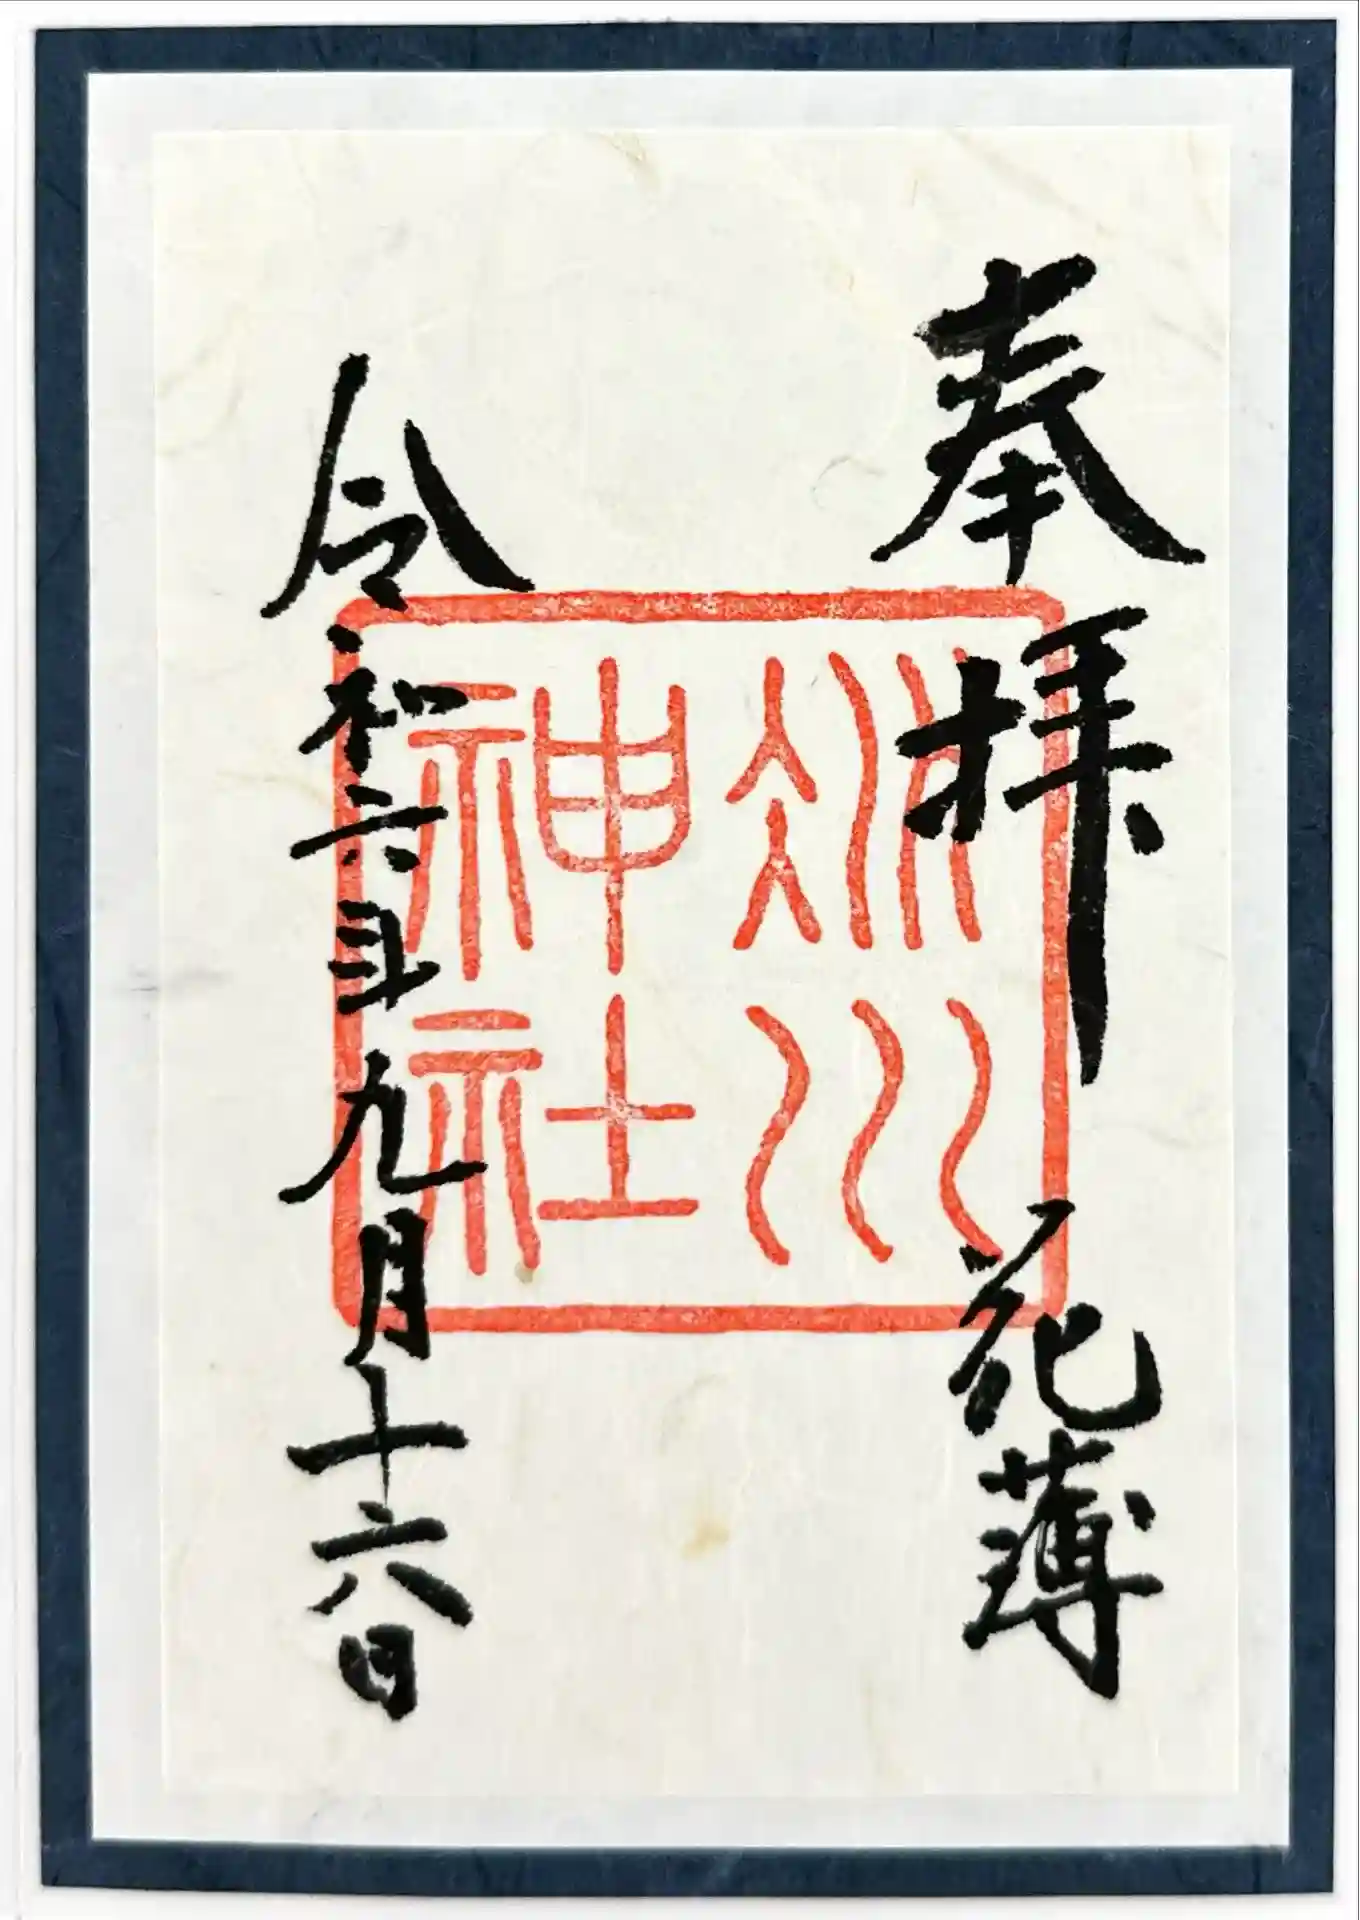 奉拝
花薄
冰川
神社
令和六年九月十六日